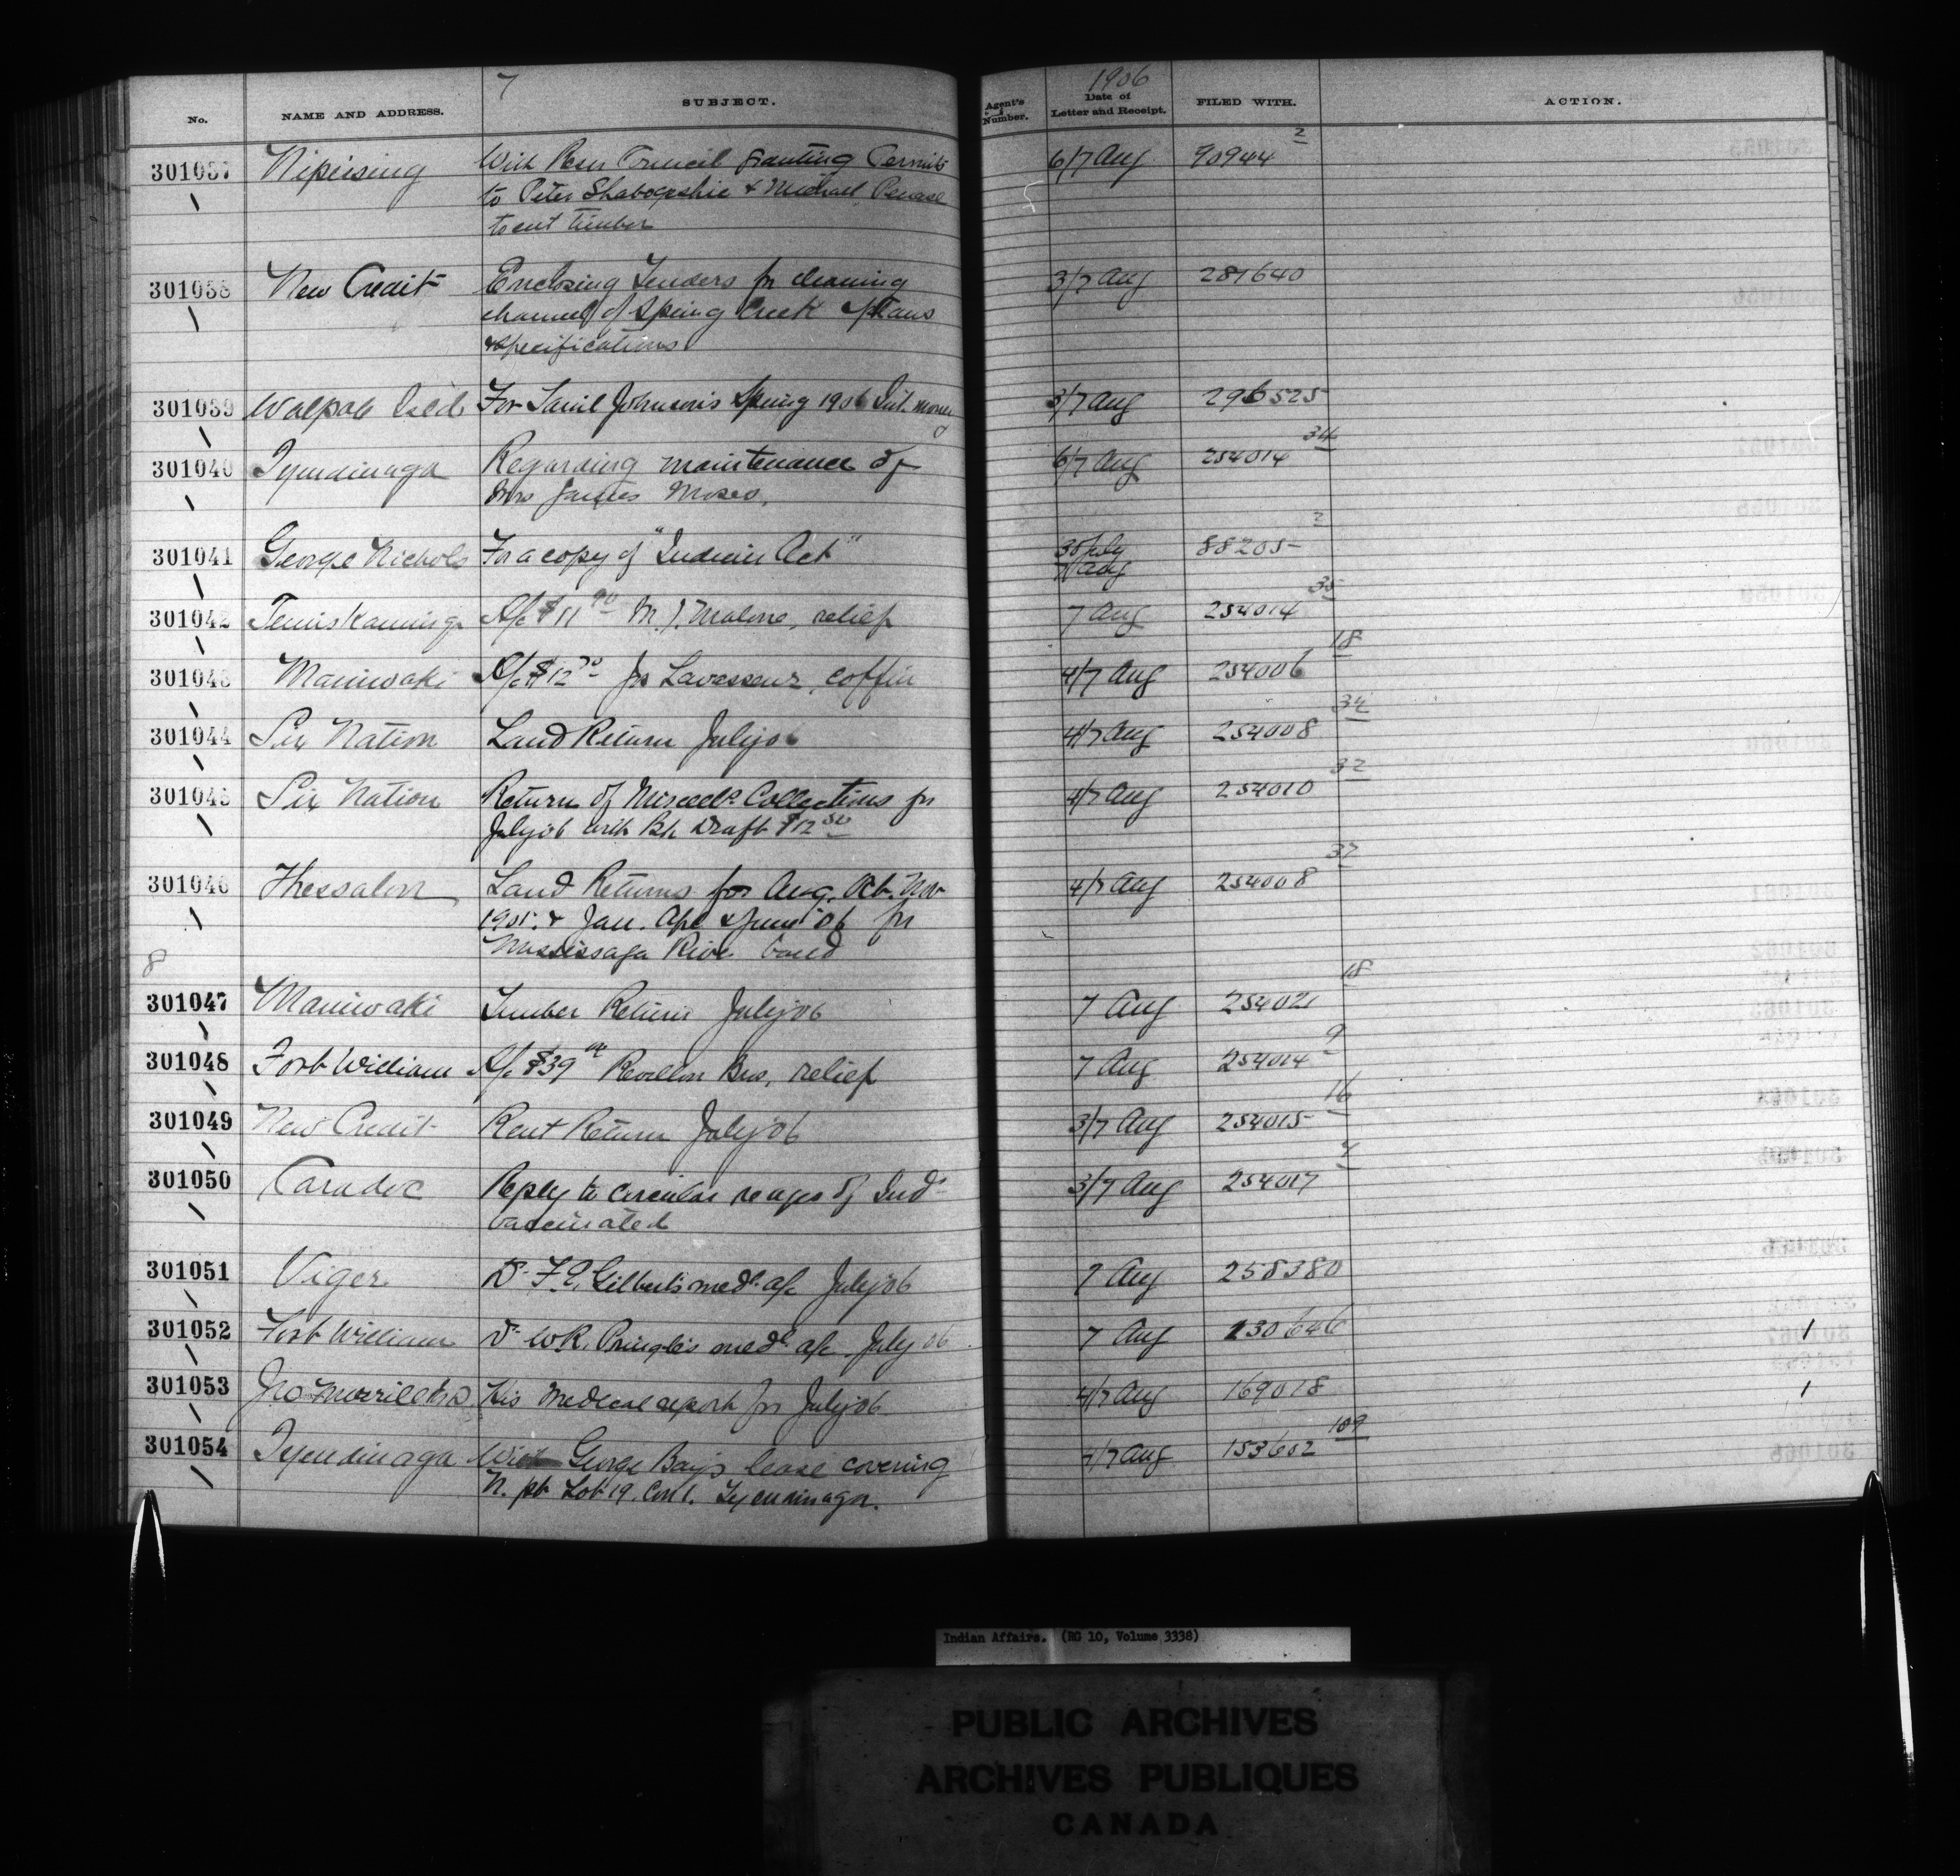 7
1906
No. NAME AND ADDRESS. SUBJECT. Agent's Number. Date of Letter and Receipt. FILED WITH. ACTION.
301037 Nipissing With Resn Council granting Permits 6/7 Aug 90944 2
to Peter & Michael
to cut timber
301038 New Credit Enclosing Tenders for cleaning 3/7 Aug 281640
channel of Spring Creek plans
& specifications
301039 Walpole Isld For Saml Johnson's Spring 1906 Int. money 3/7 Aug 296525
301040 Tyendinaga Regarding maintenance of 6/7 Aug 254014 34
Mrs James Moses.
301041 George Nichols For a copy of "Indian Act" 30 July 88205 2
7 Aug
301042 Temiskaming A/c $11 90 M. J. Malone, relief 7 Aug 254014 35
301043 Maniwaki A/c $12 Lavasseur, coffin 4/7 Aug 254006 18
301044 Six Nation Land Return July 06 4/7 Aug 254008 34
301045 Six Nation Return of Miscels Collections for 4/7 Aug 254010 32
July 06 with Bk Draft $12 50
301046 Thessalon Land Returns for Aug. Oct. Nov 4/7 Aug 254008 37
1905. & Jan. Apl & June 06 for
Mississaga River band
8
301047 Maniwaki Timber Return July 06 7 Aug 254021 18
301048 Fort William A/c $39 Revillon Bros, relief 7 Aug 254014 9
301049 New Credit Rent Return July 06 3/7 Aug 254015 16
301050 Caradoc Reply to circular re ages of Inds 3/7 Aug 254017 4
vaccinated
301051 Viger Dr F. E. Gilbert's medl a/c July 06 7 Aug 258380
301052 Fort William Dr W. R. Pringle's medl a/c July 06 7 Aug 130646 1
301053 His Medical report for July 06 4/7 Aug 169018 1
301054 Tyendinaga With George lease covering 4/7 Aug 153602 109
N. pt Lot 19. Con 1. Tyendinaga.
Indian Affairs. (RG 10, Volume 3338)
PUBLIC ARCHIVES
ARCHIVES PUBLIQUES
CANADA